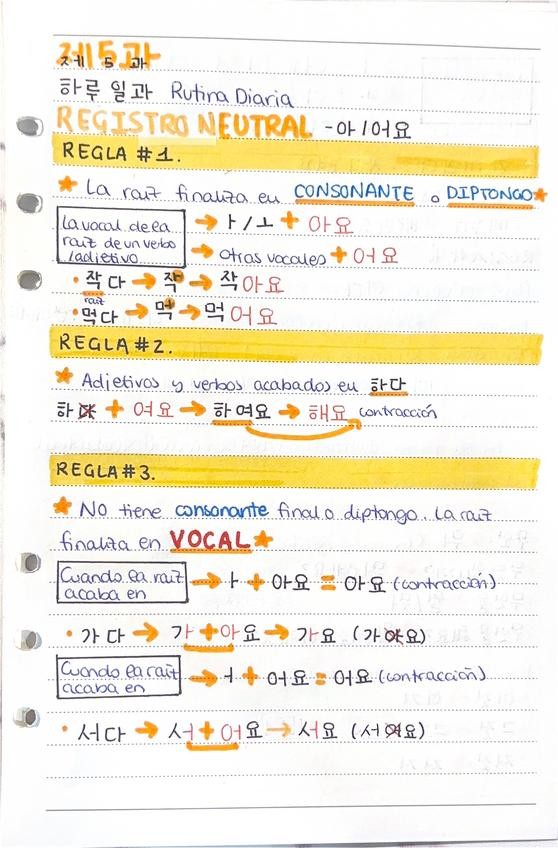 제 5 과
제 5 과
하루 일과 Rutina Diaria
REGISTRO NEUTRAL -아/어요
REGLA #1.
★ La raíz finaliza en CONSONANTE o DIPTONGO★
La vocal de la raíz de un verbo /adjetivo → ㅏ/ㅗ + 아요
→ otras vocales + 어요
• 작다 → 작 → 작아요
raíz
• 먹다 → 먹 → 먹어요
REGLA #2.
★ Adjetivos y verbos acabados en 하다
하다 + 여요 → 하여요 → 해요 contracción
REGLA #3.
★ No tiene consonante final o diptongo. La raíz
finaliza en VOCAL★
Cuando la raíz acaba en → ㅏ + 아요 = 아요 (contracción)
• 가다 → 가+아요 → 가요 (가아요)
Cuando la raíz acaba en → ㅓ + 어요 = 어요 (contracción)
• 서다 → 서+어요 → 서요 (서어요)